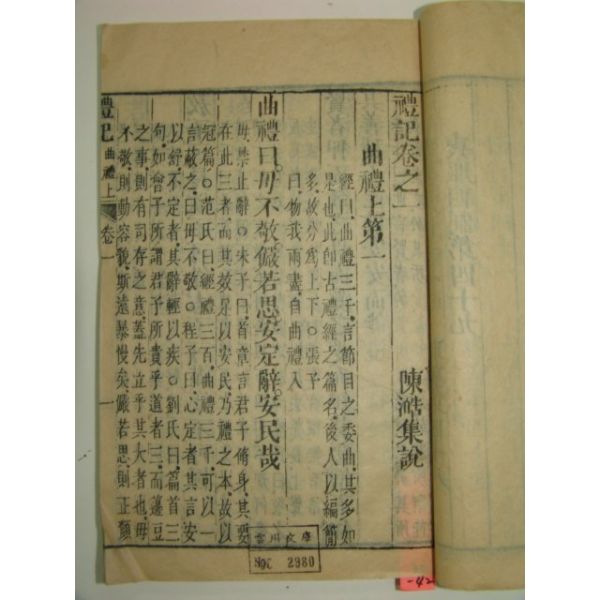 禮記卷之一
陳澔集說
曲禮上第一
經曰曲禮三千言節目之委曲其多如
是也此卽古禮經之篇名後人以編簡
多故分爲上下○張子
曰物我兩盡自曲禮入
曲禮曰毋不敬儼若思安定辭安民哉
毋禁止辭○朱子曰首章言君子修身其要
在此三者而其效足以安民乃禮之本故以
冠篇○范氏曰經禮三百曲禮三千可以一
言蔽之曰毋不敬○程子曰心定者其言安
以舒不定者其辭輕以疾○劉氏曰篇首三
句如曾子所謂君子所貴乎道者三而籩豆
之事則有司存之意蓋先立乎其大者也毋
不敬則動容貌斯遠暴慢矣儼若思則正顏
禮記 曲禮上 卷一
一
文庫
No. 2980
-42